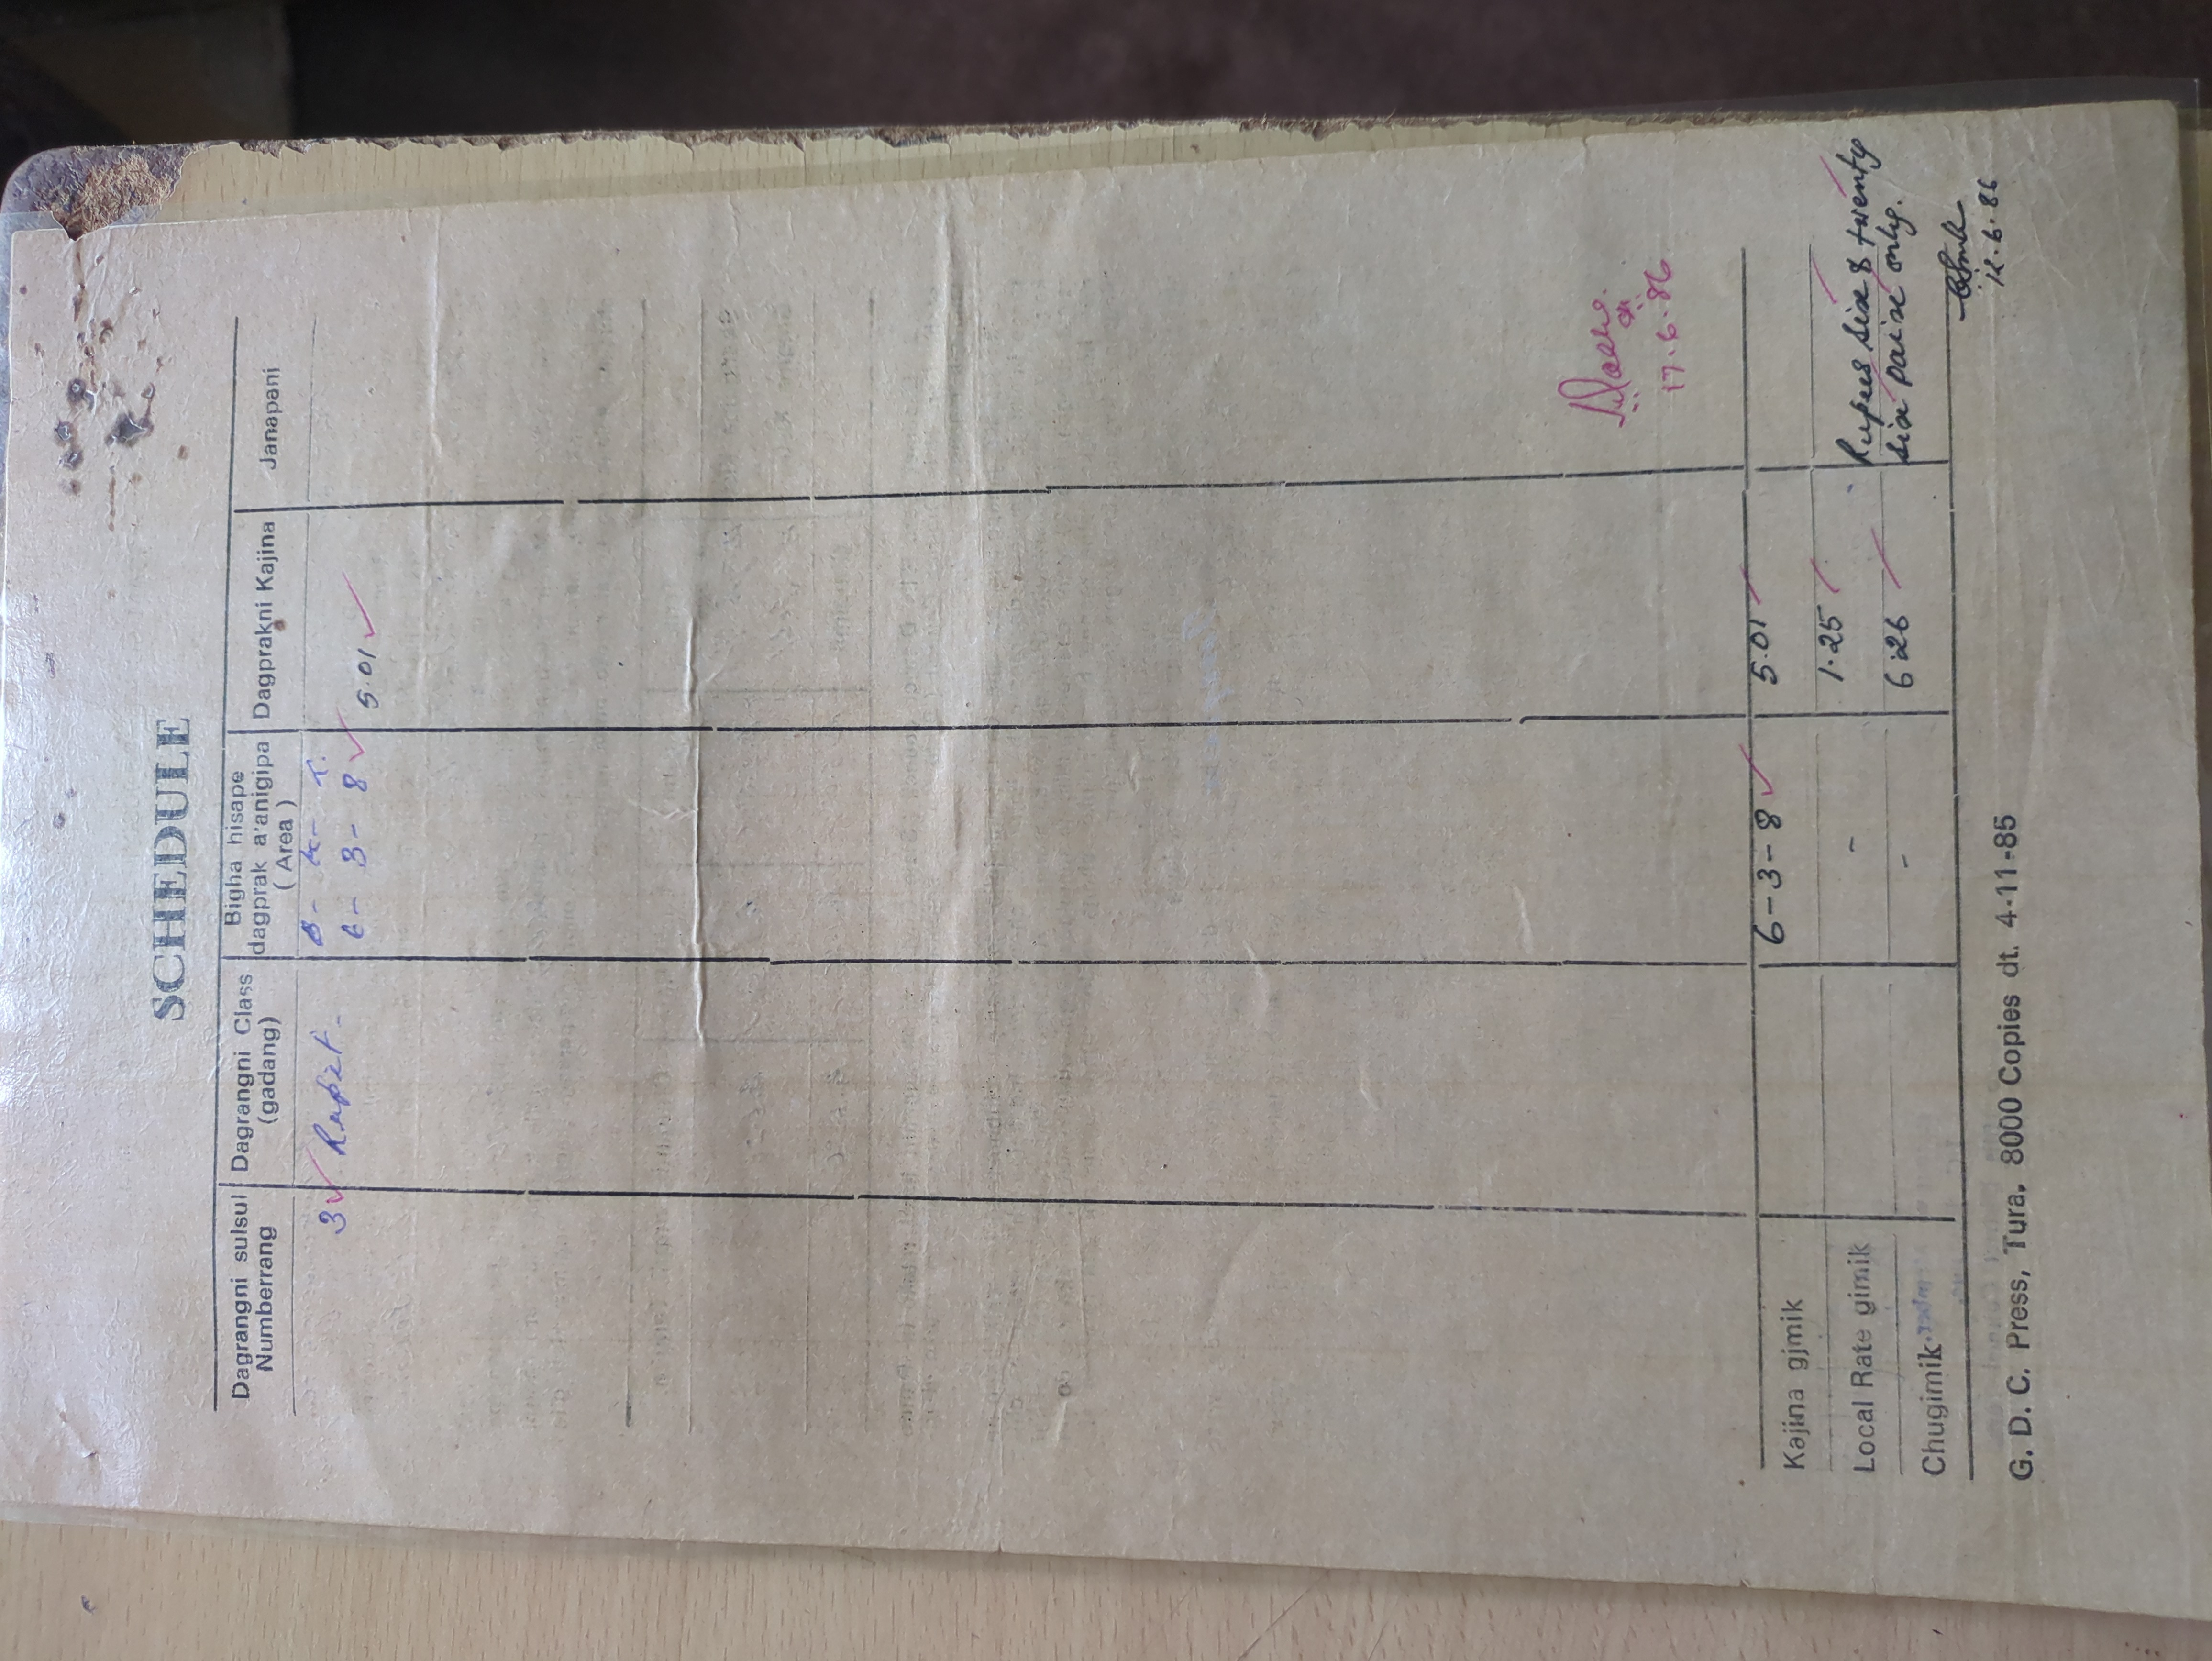 SCHEDULE
Dagrangni sulsul Numberrang
Dagrangni Class (gadang)
Bigha hisape dagprak a'anigipa ( Area )
Dagprakni Kajina
Janapani
B - K - T.
3 Rupit - 6 - 3 - 8 5.01
17.6.86
Kajina gjmik 6-3-8 5.01
Local Rate gimik - 1.25
Chugimik - 6.26
Rupees Six & twenty
Six paise only.
12.6.86
G. D. C. Press, Tura. 8000 Copies dt. 4-11-85